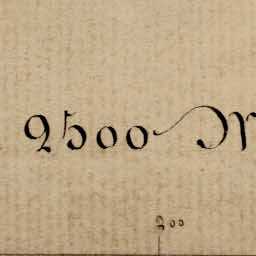 2500
200